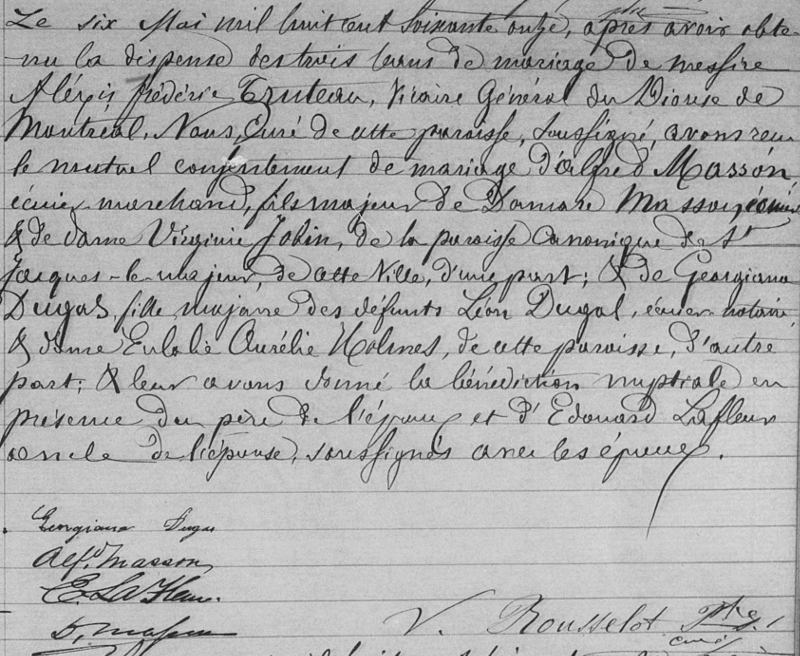 Le six Mai mil huit cent soixante onze, après avoir obte-
nu la dispense des trois bans de mariage de messire
Alexis frédéric Truteau, Vicaire Général du Diocèse de
Montreal, Nous, Curé de cette paroisse, soussigné, avons reçu
le mutuel consentement de mariage d'Alfred Masson
écuier marchand, fils majeur de Damase Masson, écuier
& de dame Virginie Jobin, de la paroisse canonique de St
Jacques-le-majeur, de cette Ville, d'une part; & de Georgiana
Dugas, fille majeure des défunts Léon Dugal, écuier notaire
& dame Eulalie Aurélie Holmes, de cette paroisse, d'autre
part; & leur avons donné la bénédiction nuptiale en
présence du père de l'époux et d'Edouard Lafleur
oncle de l'épouse, soussignés avec les époux.
Georgiana Dugas
Alfd Masson
E. LaFleur.
D. Masson
V. Rousselot Ptre
curé